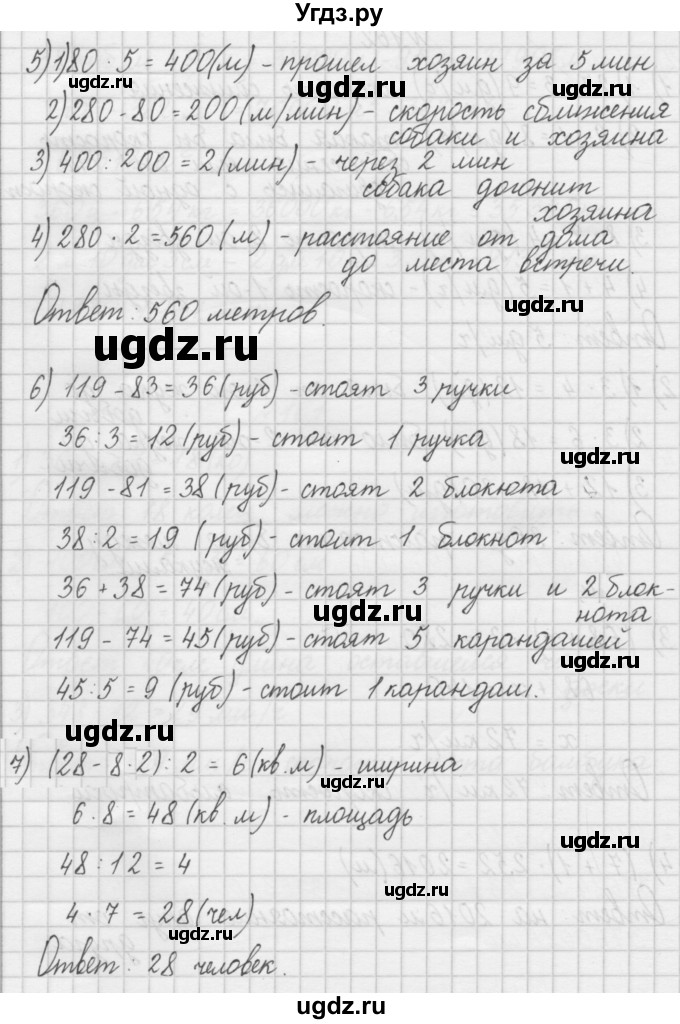 Угдз.ру
5) 1) 80 · 5 = 400(м) - прошел хозяин за 5 мин
2) 280 - 80 = 200 (м/мин) - скорость сближения
собаки и хозяина
3) 400 : 200 = 2 (мин) - через 2 мин
собака догонит
хозяина
4) 280 · 2 = 560 (м) - расстояние от дома
до места встречи.
Ответ: 560 метров.
6) 119 - 83 = 36 (руб) - стоят 3 ручки
36 : 3 = 12 (руб) - стоит 1 ручка
119 - 81 = 38 (руб) - стоят 2 блокнота
38 : 2 = 19 (руб) - стоит 1 блокнот
36 + 38 = 74 (руб) - стоят 3 ручки и 2 блок-
нота
119 - 74 = 45 (руб) - стоят 5 карандашей
45 : 5 = 9 (руб) - стоит 1 карандаш.
7) (28 - 8 · 2) : 2 = 6 (кв.м) - ширина
6 · 8 = 48 (кв.м) - площадь
48 : 12 = 4
4 · 7 = 28 (чел)
Ответ: 28 человек.
ugdz.ru